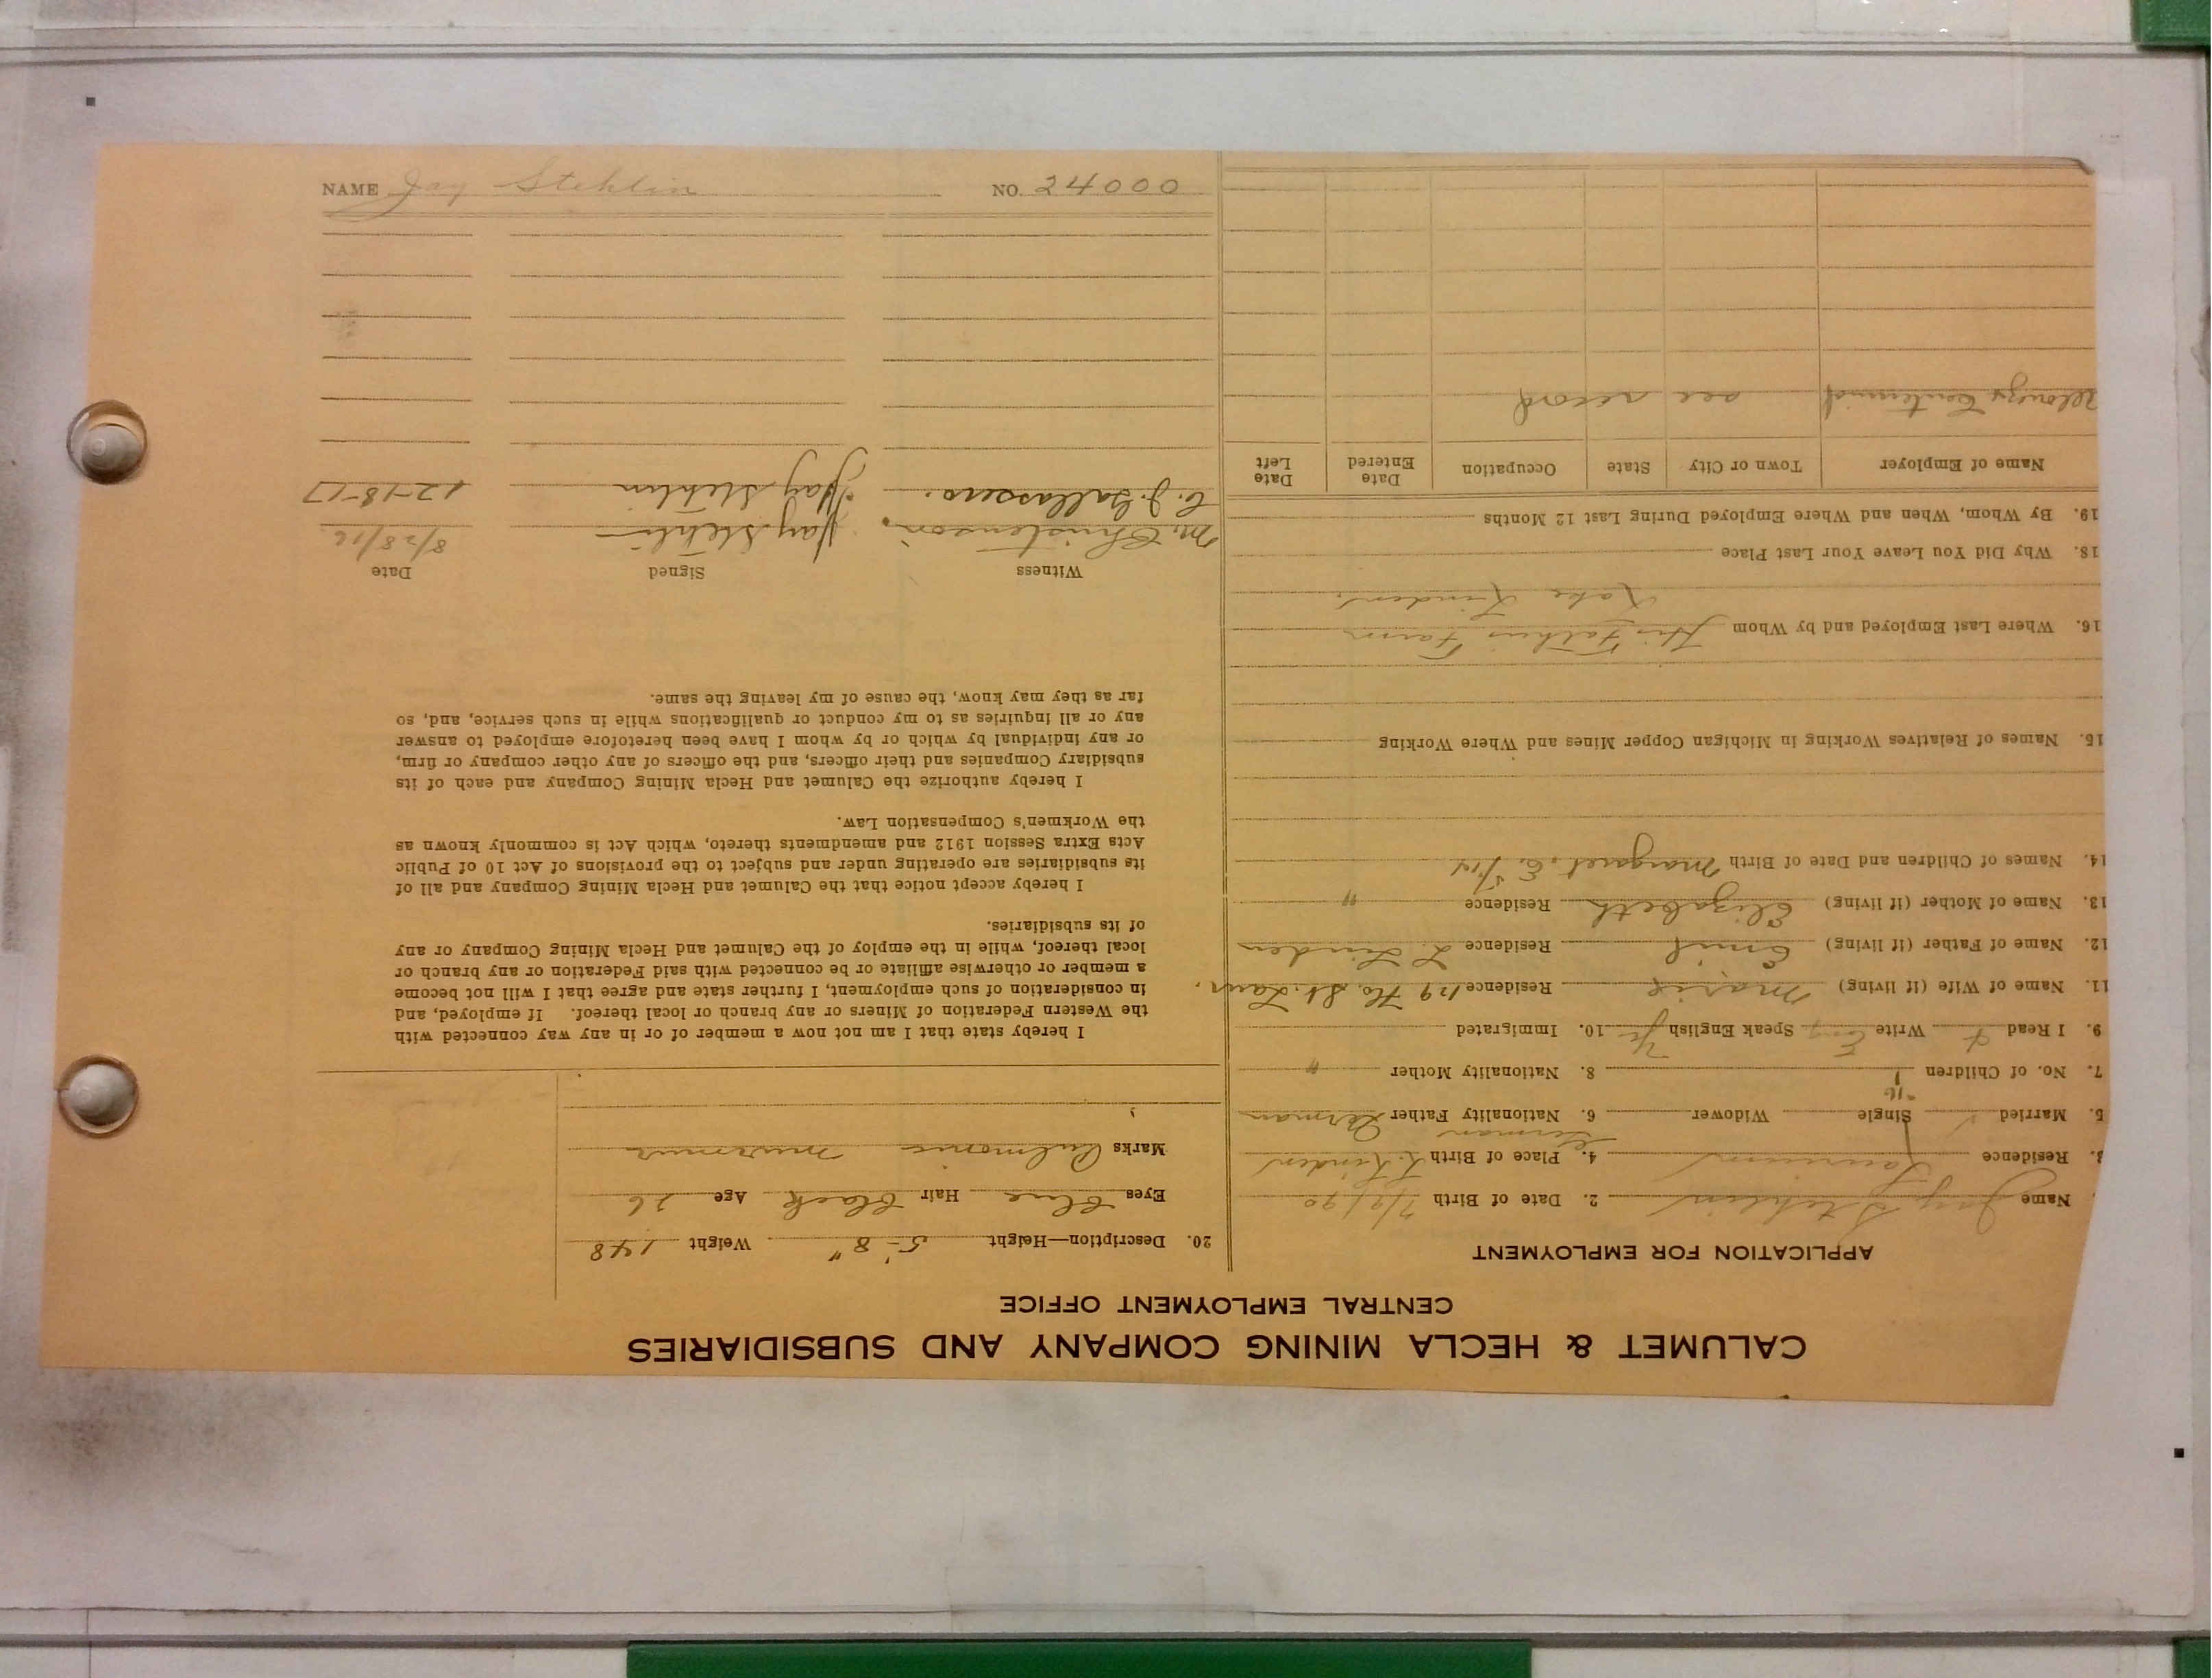 NAME Jay Stehlin NO. 24000
CALUMET & HECLA MINING COMPANY AND SUBSIDIARIES
CENTRAL EMPLOYMENT OFFICE
APPLICATION FOR EMPLOYMENT
Name Jay Stehlin 2. Date of Birth 7/9/90
3. Residence Laurium 4. Place of Birth L. Linden
German
5. Married Single Widower 6. Nationality Father German
"16
7. No. of Children 1 8. Nationality Mother "
9. I Read + Write Eng Speak English Yes 10. Immigrated
11. Name of Wife (if living) Marie Residence 129 Ho. St. Laur.
12. Name of Father (if living) Emil Residence L. Linden
13. Name of Mother (if living) Elizabeth Residence "
14. Names of Children and Date of Birth Margaret, E. 5/14
15. Names of Relatives Working in Michigan Copper Mines and Where Working
16. Where Last Employed and by Whom His Fathers Farm
Lake Linden.
18. Why Did You Leave Your Last Place
19. By Whom, When and Where Employed During Last 12 Months
Name of Employer Town or City State Occupation Date Entered Date Left
Centennial see record
20. Description—Height 5'-8" Weight 148
Eyes Blue Hair Black Age 26
Marks Pulmonic murmur
I hereby state that I am not now a member of or in any way connected with
the Western Federation of Miners or any branch or local thereof. If employed, and
in consideration of such employment, I further state and agree that I will not become
a member or otherwise affiliate or be connected with said Federation or any branch or
local thereof, while in the employ of the Calumet and Hecla Mining Company or any
of its subsidiaries.
I hereby accept notice that the Calumet and Hecla Mining Company and all of
its subsidiaries are operating under and subject to the provisions of Act 10 of Public
Acts Extra Session 1912 and amendments thereto, which Act is commonly known as
the Workmen's Compensation Law.
I hereby authorize the Calumet and Hecla Mining Company and each of its
subsidiary Companies and their officers, and the officers of any other company or firm,
or any individual by which or by whom I have been heretofore employed to answer
any or all inquiries as to my conduct or qualifications while in such service, and, so
far as they may know, the cause of my leaving the same.
Witness Signed Date
M. Christenson. Jay Stehlin 8/28/16
C. J. Gallasero. Jay Stehlin 12-18-17